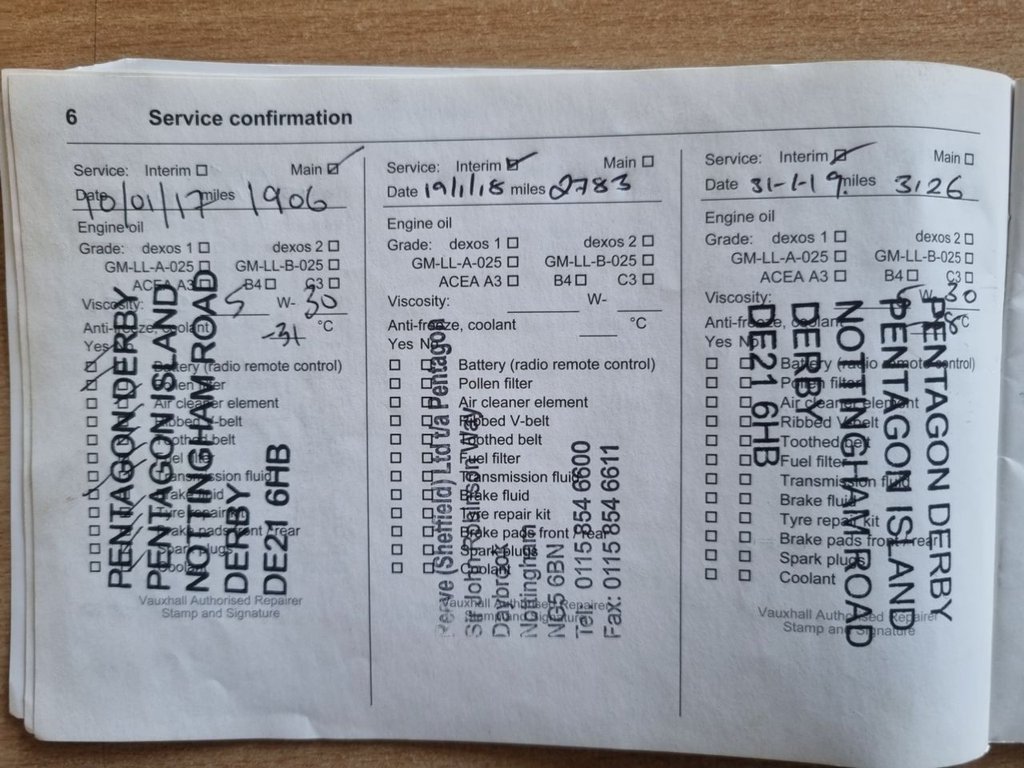 6 Service confirmation
Service: Interim Main
Date 10/01/17 miles 1906
Engine oil
Grade: dexos 1 dexos 2
GM-LL-A-025 GM-LL-B-025
ACEA A3 B4 C3
Viscosity: 5 W- 30
Anti-freeze, coolant -31 °C
Yes No
Battery (radio remote control)
Pollen filter
Air cleaner element
Ribbed V-belt
Toothed belt
Fuel filter
Transmission fluid
Brake fluid
Tyre repair kit
Brake pads front / rear
Spark plugs
Coolant
Vauxhall Authorised Repairer
Stamp and Signature
PENTAGON DERBY
PENTAGON ISLAND
NOTTINGHAM ROAD
DERBY
DE21 6HB
Service: Interim Main
Date 19/1/18 miles 2783
Engine oil
Grade: dexos 1 dexos 2
GM-LL-A-025 GM-LL-B-025
ACEA A3 B4 C3
Viscosity: W-
Anti-freeze, coolant °C
Yes No
Battery (radio remote control)
Pollen filter
Air cleaner element
Ribbed V-belt
Toothed belt
Fuel filter
Transmission fluid
Brake fluid
Tyre repair kit
Brake pads front / rear
Spark plugs
Coolant
Vauxhall Authorised Repairer
Stamp and Signature
(Sheffield) Ltd t/a Pentagon
Sir John Robinson Way
Daybrook
Nottingham
NG5 6BN
Tel: 0115 854 6600
Fax: 0115 854 6611
Service: Interim Main
Date 31-1-19. miles 3126
Engine oil
Grade: dexos 1 dexos 2
GM-LL-A-025 GM-LL-B-025
ACEA A3 B4 C3
Viscosity: 5 W- 30
Anti-freeze, coolant °C
Yes No
Battery (radio remote control)
Pollen filter
Air cleaner element
Ribbed V-belt
Toothed belt
Fuel filter
Transmission fluid
Brake fluid
Tyre repair kit
Brake pads front / rear
Spark plugs
Coolant
Vauxhall Authorised Repairer
Stamp and Signature
PENTAGON DERBY
PENTAGON ISLAND
NOTTINGHAM ROAD
DERBY
DE21 6HB